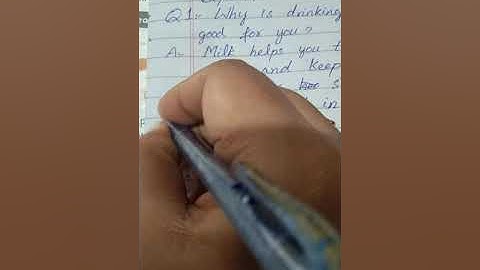 Q1:- Why is drinking
good for you?
A:- Milk helps you t
and keep
s
in